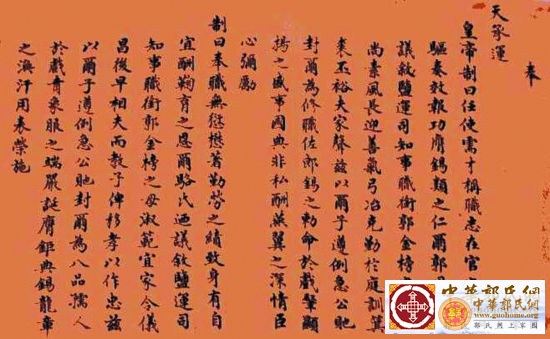 奉
天承運
皇帝制曰任使需才稱職志在官
驅奏效報功膺錫類之仁爾郭
議敘鹽運司知事職銜郭金榜
尚素風長迎善氣弓冶克勤於庭訓箕
裘丕裕夫家聲茲以爾子遵例急公貤
封爾為修職佐郎錫之勅命於戲肇顯
揚之盛事國典非私酬燕翼之深情臣
心彌勵
制曰奉職無愆懋著勤勞之績致身有自
宜酬鞠育之恩爾駱氏迺議敘鹽運司
知事職銜郭金榜之母淑範宜家令儀
昌後早相夫而教子俾移孝以作忠茲
以爾子遵例急公貤封爾為八品孺人
於戲賁象服之端嚴誕膺鉅典錫龍章
之渙汗用表榮施
中華郭氏網
www.guohome.org
郭氏網上家園